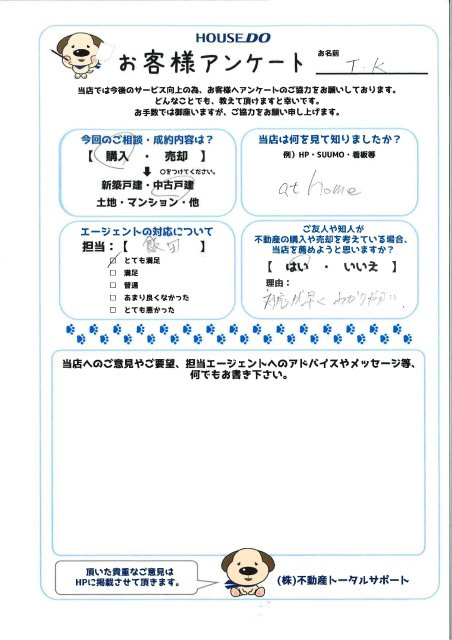 HOUSEDO
お客様アンケート
お名前
T.K
当店では今後のサービス向上の為、お客様へアンケートのご協力をお願いしております。
どんなことでも、教えて頂けますと幸いです。
お手数では御座いますが、ご協力をお願い申し上げます。
今回のご相談・成約内容は?
【 購入 ・ 売却 】
○をつけてください。
新築戸建・中古戸建
土地・マンション・他
当店は何を見て知りましたか?
例)HP・SUUMO・看板等
at home
エージェントの対応について
担当:【 飯田 】
□ とても満足
□ 満足
□ 普通
□ あまり良くなかった
□ とても悪かった
ご友人や知人が
不動産の購入や売却を考えている場合、
当店を薦めようと思いますか?
【 はい ・ いいえ 】
理由:
対応が早く わかりやすい.
当店へのご意見やご要望、担当エージェントへのアドバイスやメッセージ等、
何でもお書き下さい。
頂いた貴重なご意見は
HPに掲載させて頂きます。
(株)不動産トータルサポート